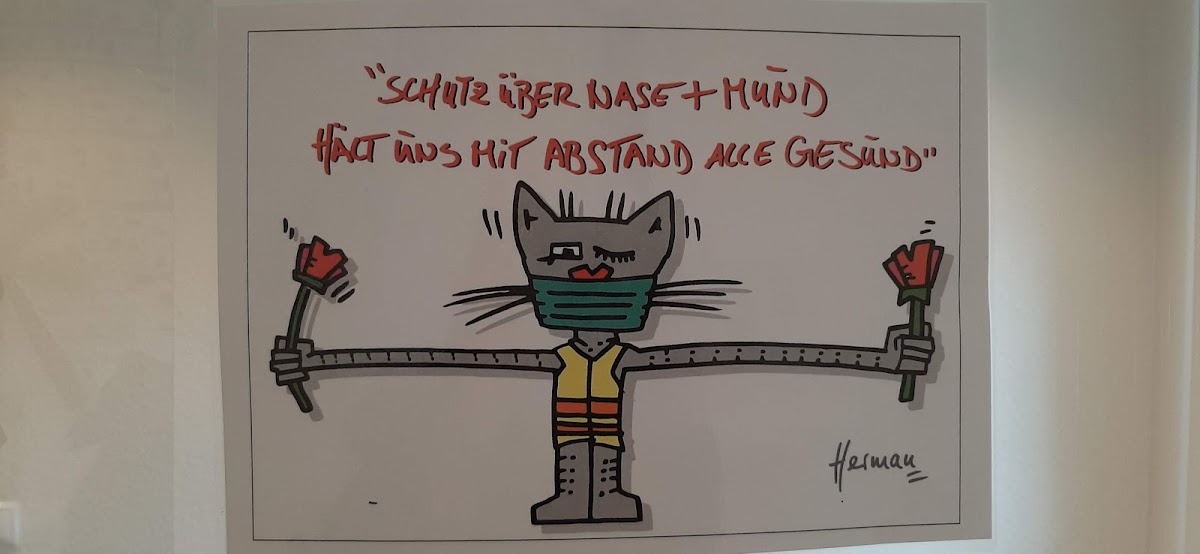 "SCHUTZ ÜBER NASE + MUND
HÄLT UNS MIT ABSTAND ALLE GESUND"
Herman